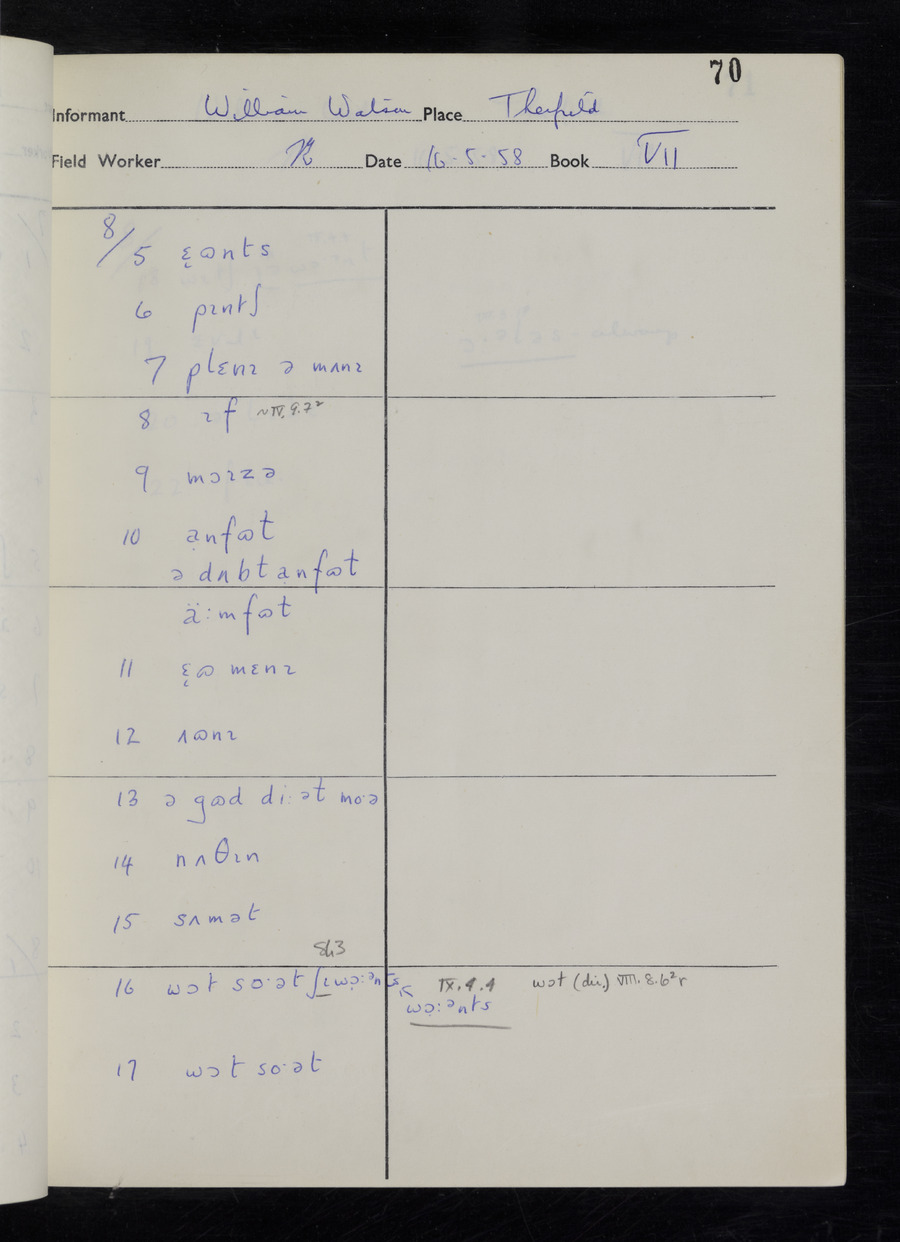 70
Informant William Watson Place Therfield
Field Worker Date 16.5.58 Book VII
8/5 ɛ̨ɷnts
6 pɪntʃ
7 plɛnɪ ə mʌnɪ
8 ɪf ~IV.9.7²
9 mɔɪzə
10 ạnfɷt
ə dʌbt ạnfɷt
ä:mfɷt
11 ɛ̨ɷ mɛnɪ
12 ʌɷnɪ
13 ə gɷd di:ət mo·ə
14 nʌθɪn
15 sʌmət
sh3
16 wɔt so·ət ʃɪ wɔ̣:ənts IX.9.4 wɔt (dir.) VIII.8.6²r
wɔ̣:ənts
17 wɔt so·ət